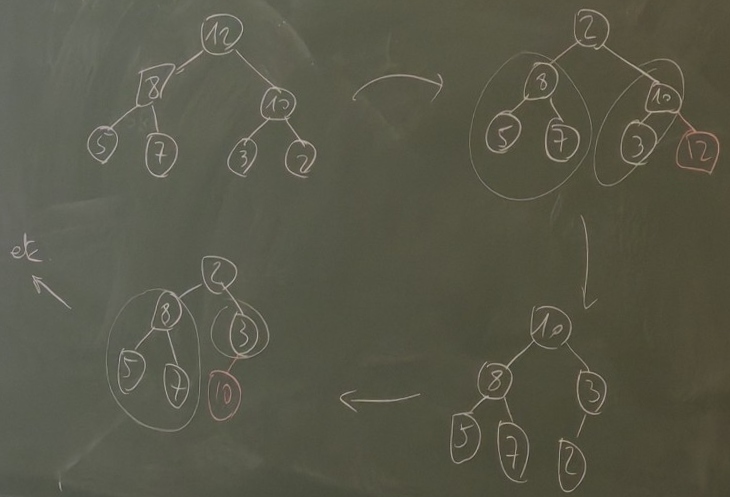 12
8 10
5 7 3 2
2
8 10
5 7 3 12
10
8 3
5 7 2
2
8 3
5 7 10
etc.